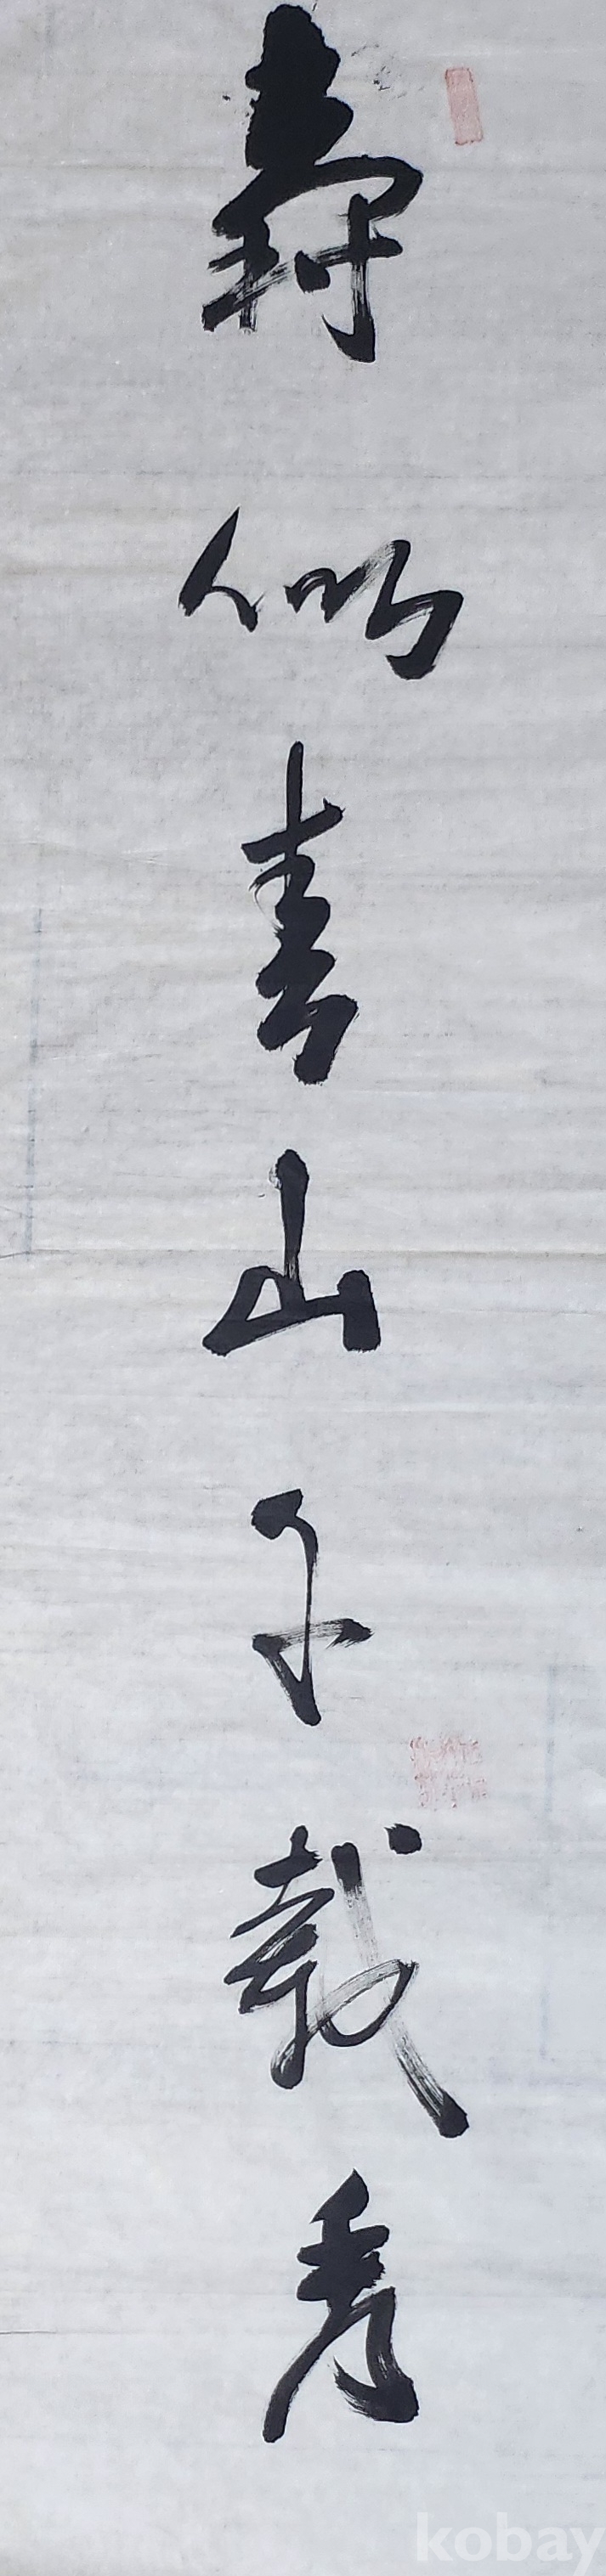 壽似青山千載秀
kobay